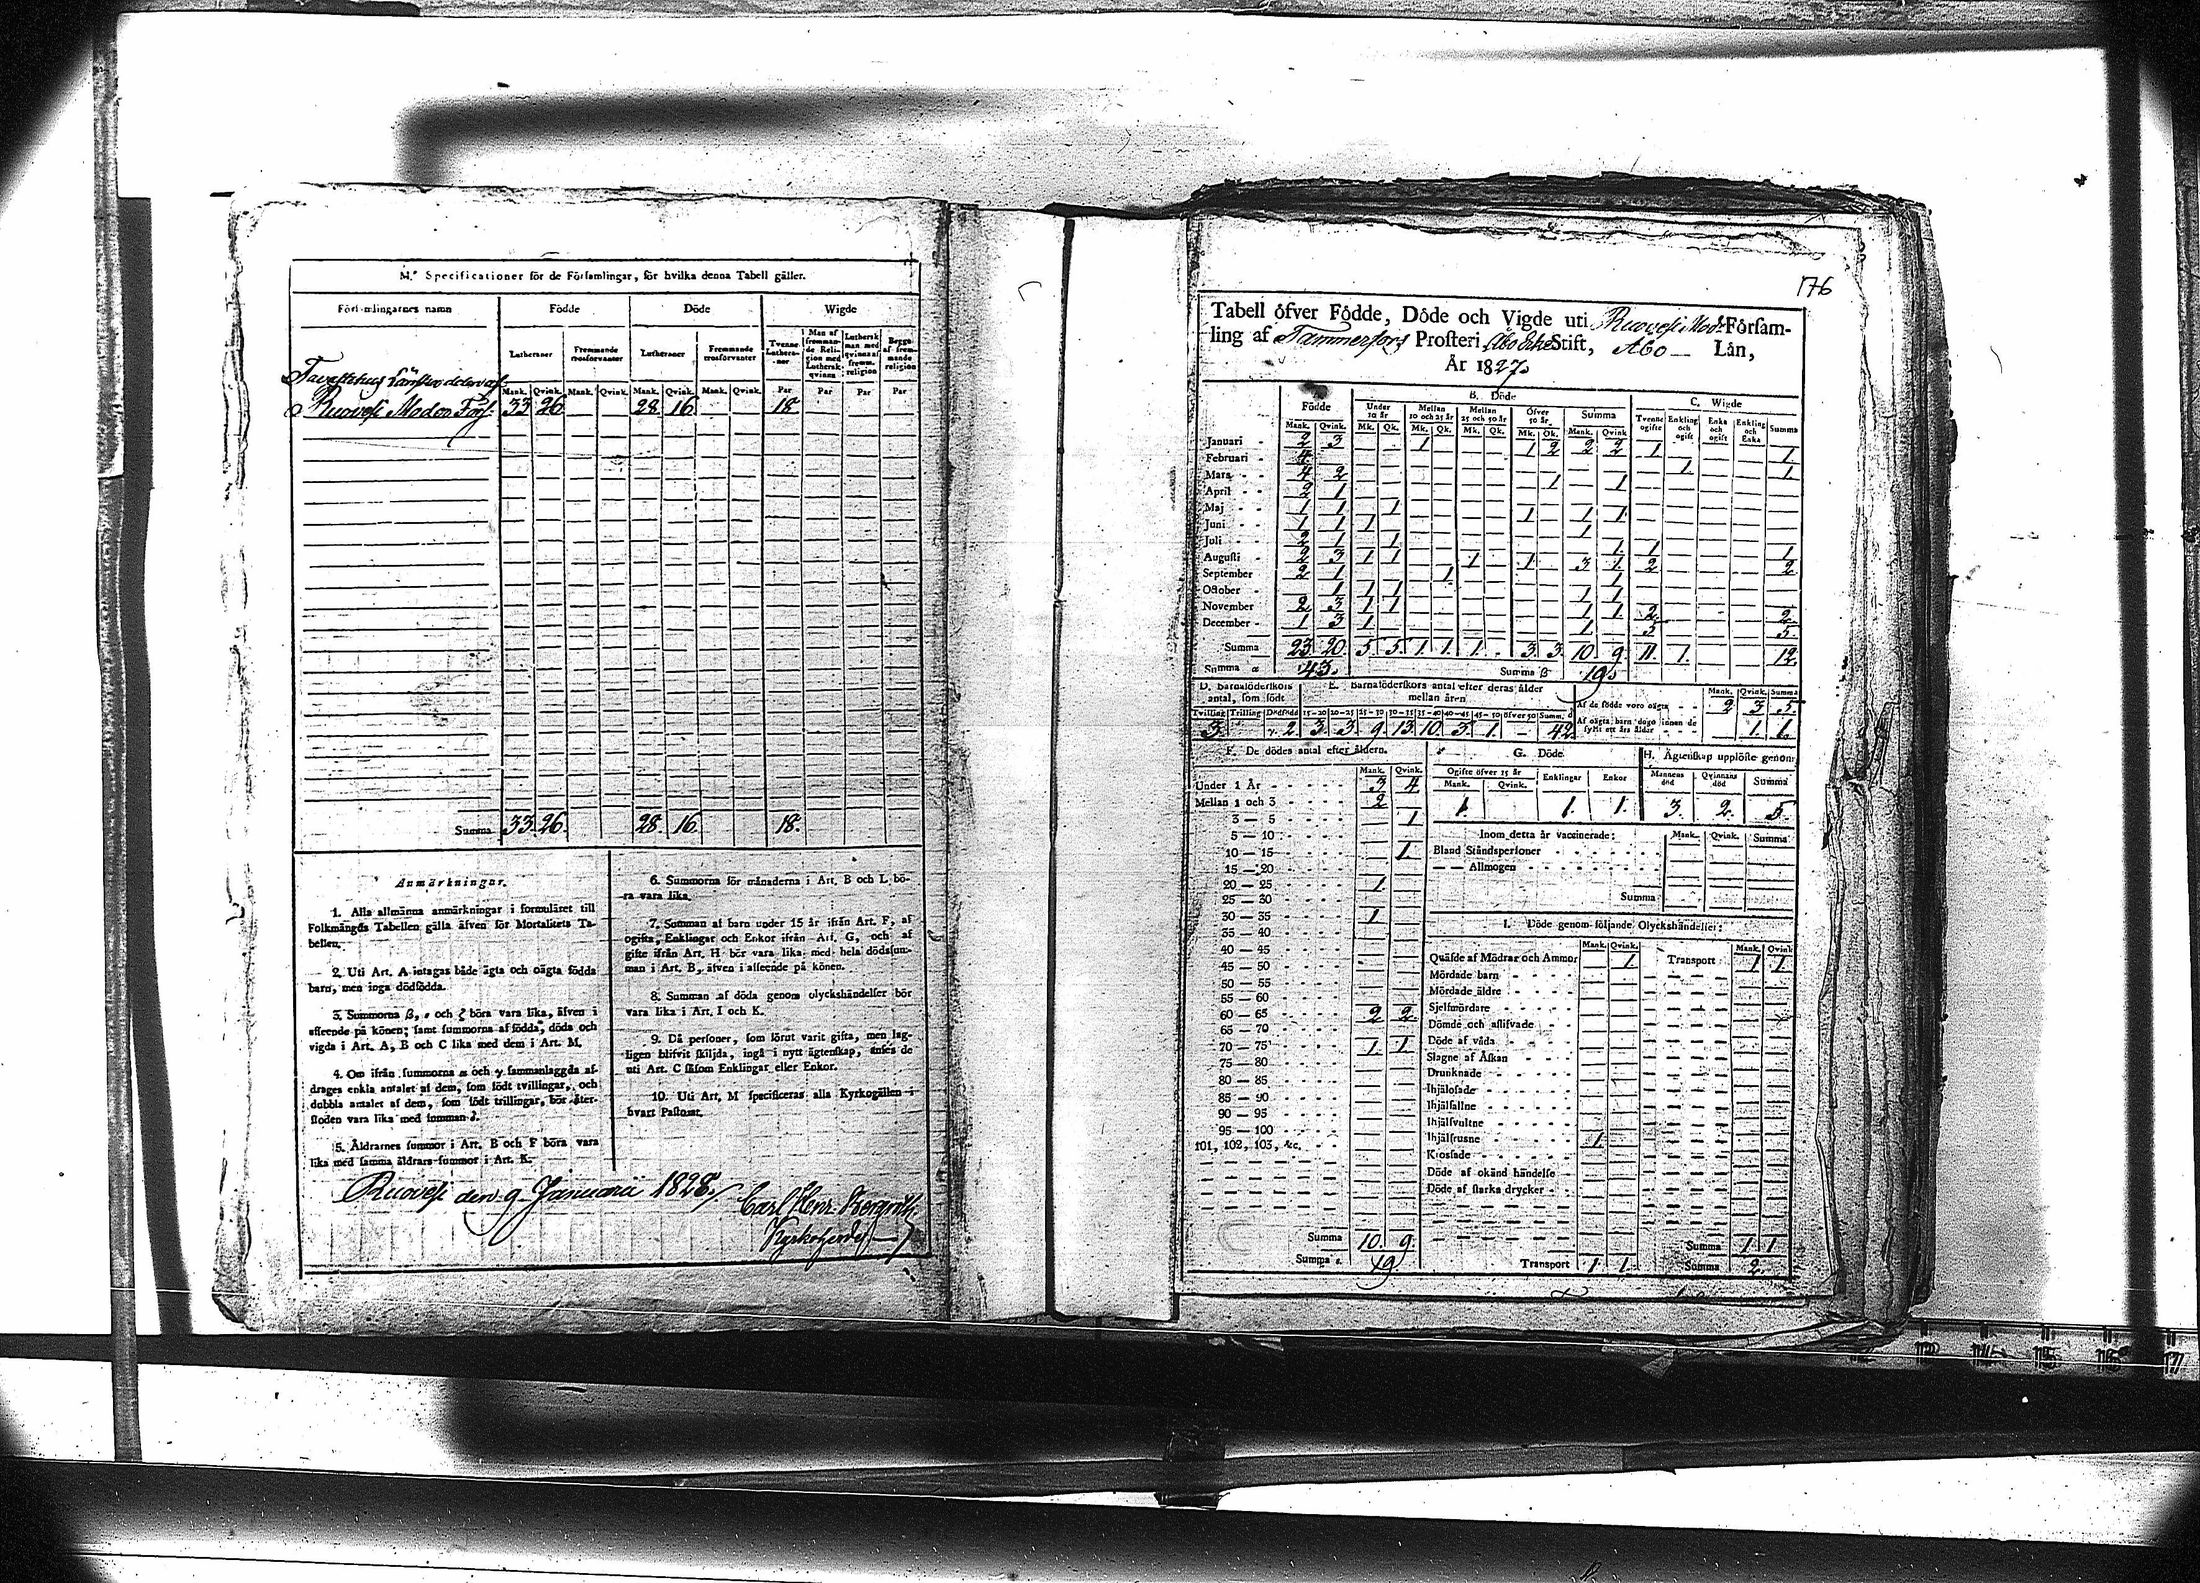 M.* Specificationer för de Församlingar, för hvilka denna Tabell gäller.
Församlingarnes namn
Födde
Döde
Wigde
Lutheraner
Fremmande trosförvanter
Lutheraner
Fremmande trosförvanter
Tvenne Lutheraner
Man af fremmande Religion med Luthersk qvinna
Luthersk man med qvinna af fremm. religion
Begge af fremmande religion
Mank. Qvink. Mank. Qvink. Mank. Qvink. Mank. Qvink. Par Par Par Par
Tavastehus länsko delen af
Ruovesi Moder Förs. 33 26 28 16 18
Summa 33. 26. 28. 16. 18.
Anmärkningar.
1. Alla allmänna anmärkningar i formuläret till
Folkmängds Tabellen gälla äfven för Mortalitets Ta-
bellen.
2. Uti Art. A intagas både ägta och oägta födda
barn, men inga dödfödda.
3. Summorna β, ε och ζ böra vara lika, äfven i
afseende på könen; samt summorna af födda, döda och
vigda i Art. A, B och C lika med dem i Art. M.
4. Om ifrån summorna α och γ sammanlaggda af-
drages enkla antalet af dem, som födt tvillingar, och
dubbla antalet af dem, som födt trillingar, bör åter-
stoden vara lika med summan δ.
5. Åldrarnes summor i Art. B och F böra vara
lika med samma åldrars summor i Art. K.
6. Summorna för månaderna i Art. B och L bö-
ra vara lika.
7. Summan af barn under 15 år ifrån Art. F, af
ogifta, Enklingar och Enkor ifrån Art. G, och af
gifte ifrån Art. H bör vara lika med hela dödssum-
man i Art. B, äfven i afseende på könen.
8. Summan af döda genom olyckshändelser bör
vara lika i Art. I och K.
9. Då personer, som förut varit gifta, men lag-
ligen blifvit skiljda, ingå i nytt ägtenskap, anses de
uti Art. C såsom Enklingar eller Enkor.
10. Uti Art. M specificeras alla Kyrkogällen i
hvart Pastorat.
Ruovesi den 9 Januarii 1828.
Carl Henr. Bergroth
Kyrkoherde
176
Tabell öfver Födde, Döde och Vigde uti Ruovesi Mod. Försam-
ling af Tammerfors Prosteri, Åbo Erke Stift, Åbo — Län,
År 1827.
Födde
B. Döde
C. Wigde
Under 10 år
Mellan 10 och 25 år
Mellan 25 och 50 år
Öfver 50 år
Summa
Tvenne ogifte
Enkling och ogift
Enka och ogift
Enkling och Enka
Summa
Mank. Qvink. Mk. Qk. Mk. Qk. Mk. Qk. Mk. Qk. Mank. Qvink
Januari 2 3 1 1 2 2 2 1 1
Februari 4 1 1
Mars 4 2 1 1
April 2 1
Maj 1 1 1 1 1 1
Juni 1 1 1 1
Juli 2 1 1 1 1 1
Augusti 2 3 1 1 1 1 3 1 2 2
September 2 1 1 1
October 1 1 1 1 1
November 2 3 1 1 1 1 2 2
December 1 3 1 1 5 5
Summa 23 20 5 5 1 1 1 . 3 3 10 9 11 1 12
Summa α 43.
Summa β 19.
D. Barnaföderskors antal, som födt
E. Barnaföderskors antal efter deras ålder mellan åren
Tvilling Trilling Dödfödd 15-20 20-25 25-30 30-35 35-40 40-45 45-50 öfver 50 Summ. δ
3. γ. 2. 3. 3. 9. 13. 10. 3. 1. - 42.
Mank. Qvink. Summa
Af de födde voro oägta 2 3 5
Af oägta barn dogo innan de fyllt ett års ålder 1. 1.
F. De dödes antal efter åldern.
Mank. Qvink.
Under 1 År 3 4
Mellan 1 och 3 2
3 — 5 1
5 — 10
10 — 15 1.
15 — 20
20 — 25 1
25 — 30
30 — 35 1
35 — 40
40 — 45
45 — 50
50 — 55
55 — 60
60 — 65 2 2
65 — 70
70 — 75 1 1
75 — 80
80 — 85
85 — 90
90 — 95
95 — 100
101, 102, 103, &c.
Summa 10. 9
Summa ε. 19
G. Döde
Ogifte öfver 15 år
Enklingar
Enkor
Mank. Qvink.
1. 1. 1.
H. Ägtenskap upplöste genom
Mannens död
Qvinnans död
Summa
3. 2. 5
Inom detta år vaccinerade: Mank. Qvink. Summa
Bland Ståndspersoner
— — Allmogen
Summa
I. Döde genom följande Olyckshändelser:
Mank. Qvink. Mank. Qvink
Quäfde af Mödrar och Ammor 1 Transport 1 1
Mördade barn
Mördade äldre
Sjelfmördare
Dömde och aflifvade
Döde af våda
Slagne af Åskan
Drunknade
Ihjälosade
Ihjälfallne
Ihjälsvultne
Ihjälfrusne 1
Krossade
Döde af okänd händelse
Döde af starka drycker
Summa 1 1
Transport 1 1. Summa 2.